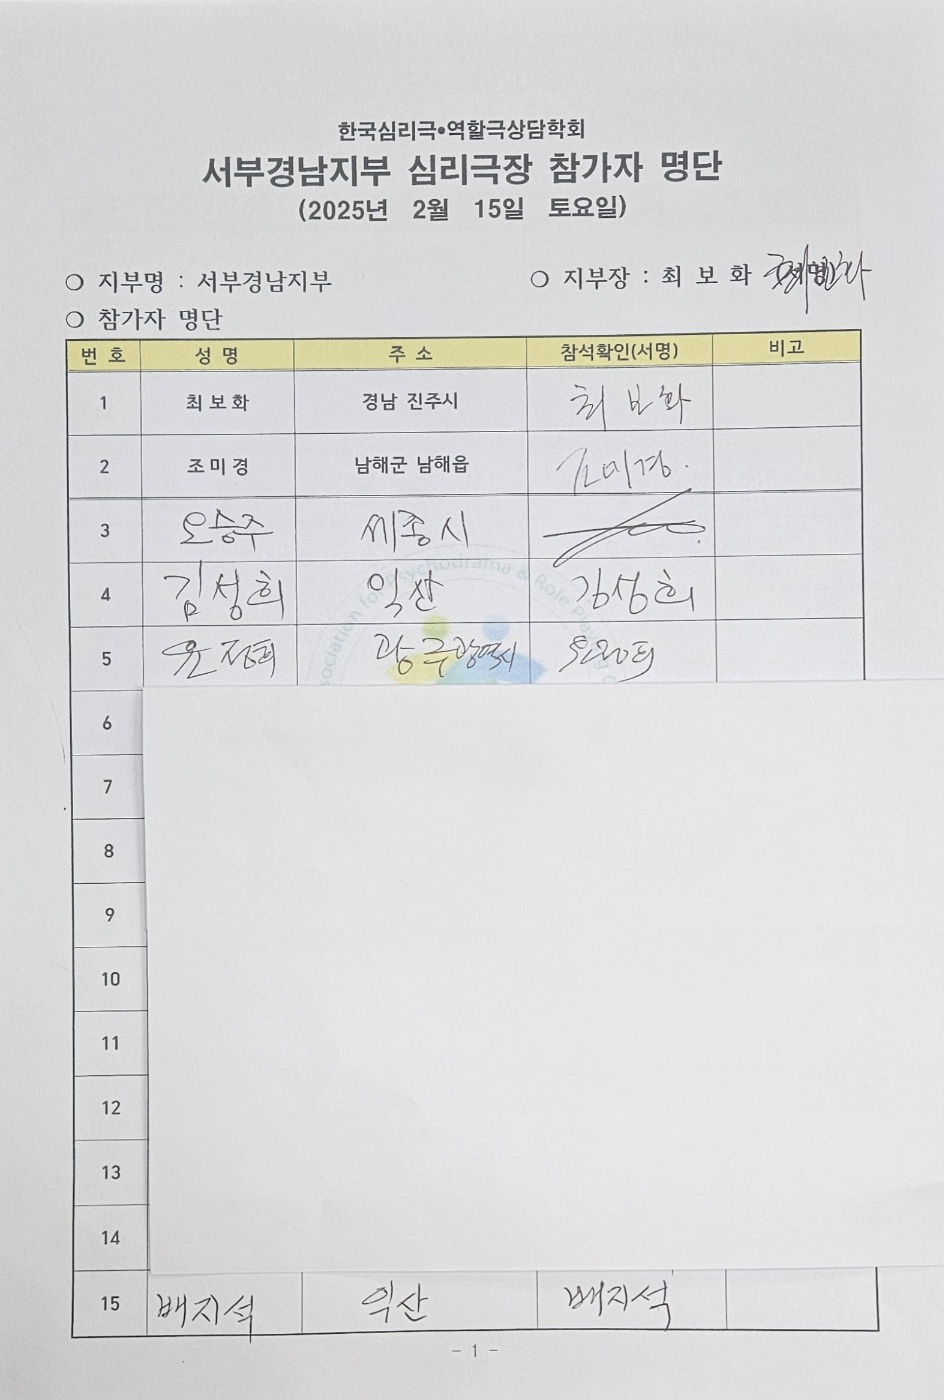 한국심리극•역할극상담학회
서부경남지부 심리극장 참가자 명단
(2025년 2월 15일 토요일)
❍ 지부명 : 서부경남지부 ❍ 지부장 : 최 보 화
❍ 참가자 명단
번 호 성 명 주 소 참석확인(서명) 비고
1 최보화 경남 진주시 최 보 화
2 조미경 남해군 남해읍 조미경.
3 오승주 세종시
4 김성희 익산 김성희
5 윤정희 광주광역시
sociation for Psychodrama & Role Play
6
7
8
9
10
11
12
13
14
15 배지석 익산 배지석
- 1 -